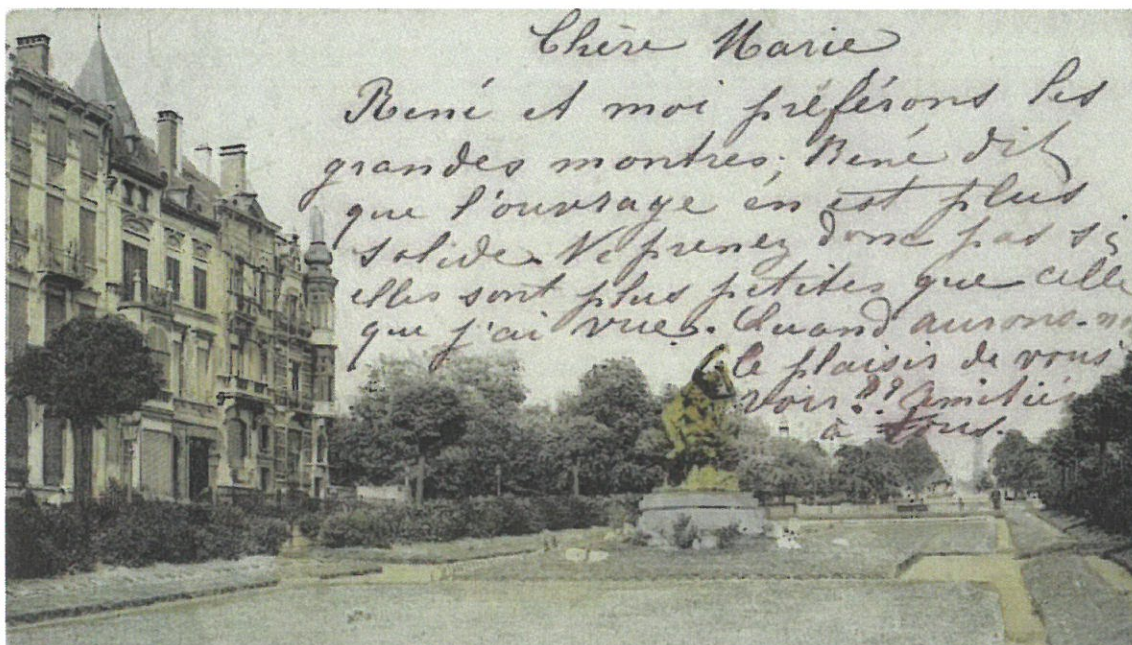 Chère Marie
René et moi préférons les
grandes montres; René dit
que l'ouvrage en est plus
solide. Ne prenez donc pas si
elles sont plus petites que celle
que j'ai vue. Quand aurons-no
le plaisir de vous
voir?? Amitiés
à tous.